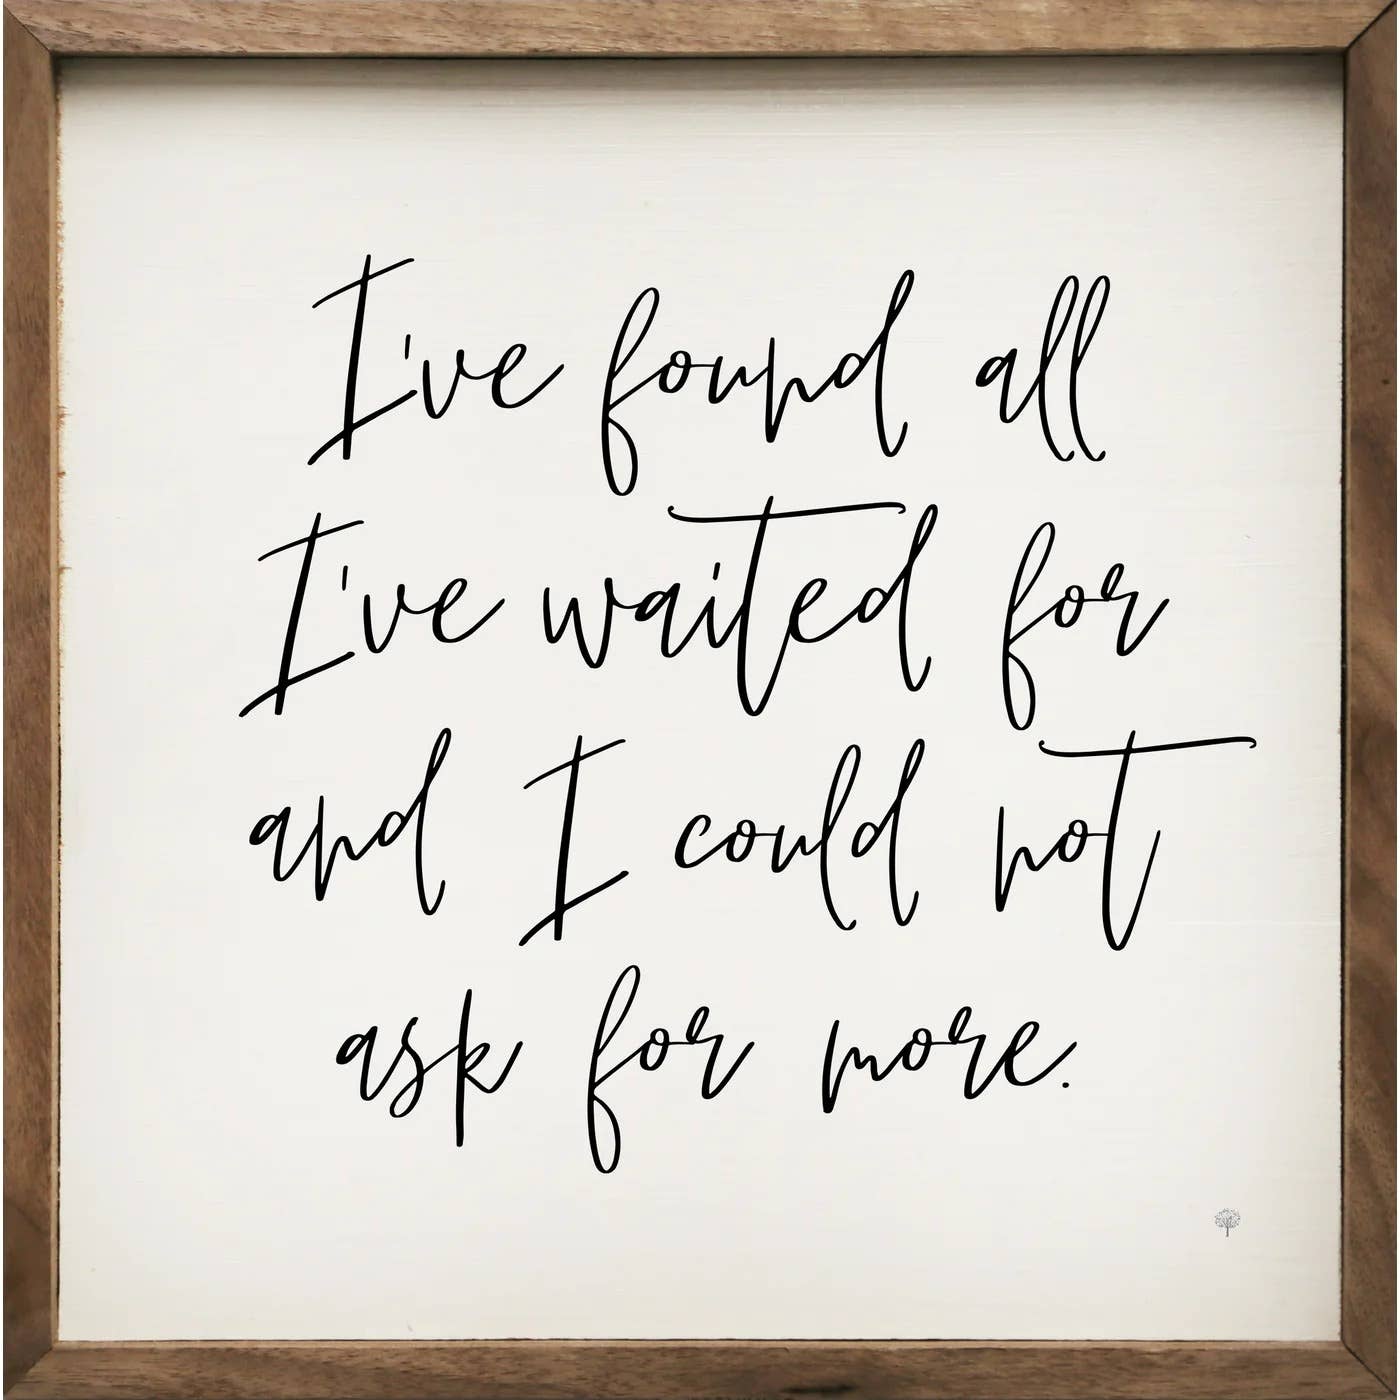 I've found all
I've waited for
and I could not
ask for more.